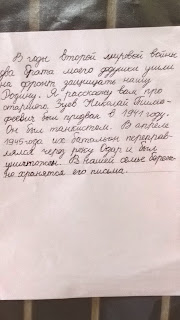 В годы Второй мировой войны
два брата моего дедушки ушли
на фронт защищать нашу
Родину. Я расскажу вам про
старшего. Зуев Николай Тимо-
феевич был призван в 1941 году.
Он был танкистом. В апреле
1945 года их батальон переправ-
лялся через реку Одар и был
уничтожен. В нашей семье береж-
но хранятся его письма.